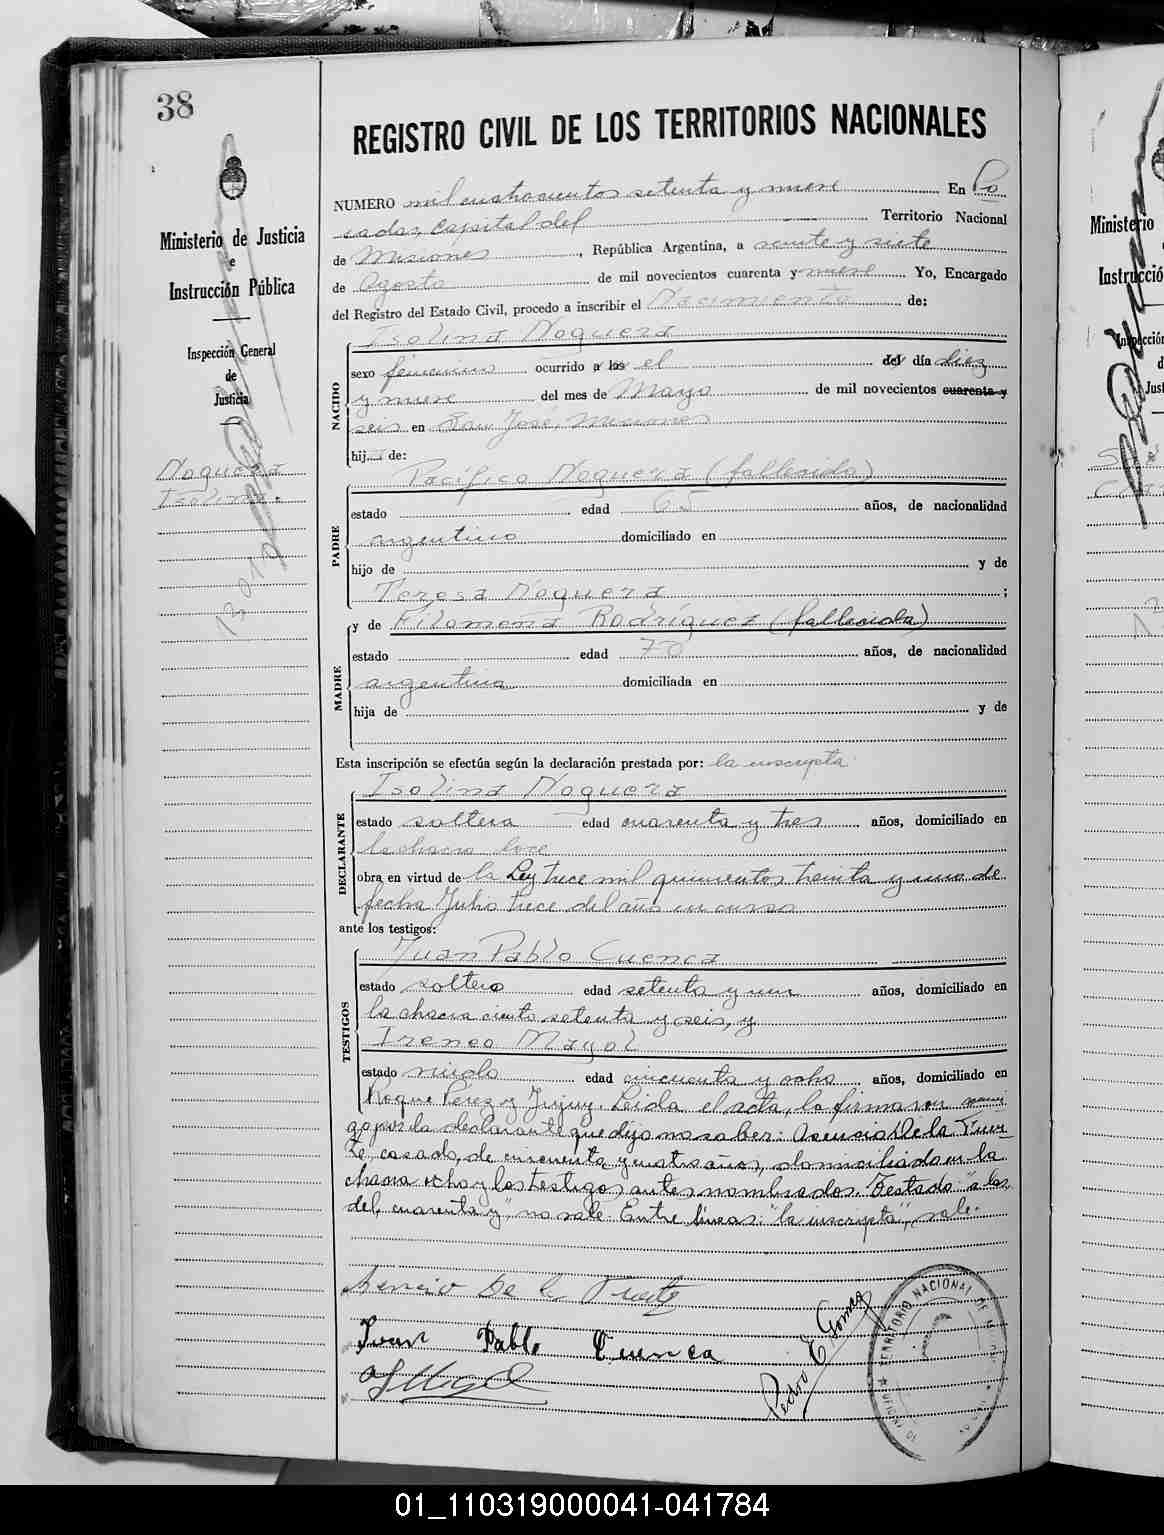 38
REGISTRO CIVIL DE LOS TERRITORIOS NACIONALES
Ministerio de Justicia
e
Instrucción Pública
Inspección General
de
Justicia
Noguera
Isolina.
NUMERO mil cuatrocientos setenta y nueve En Po
sadas, capital del Territorio Nacional
de Misiones, República Argentina, a veinte y siete
de Agosto de mil novecientos cuarenta y nueve Yo, Encargado
del Registro del Estado Civil, procedo a inscribir el Nacimiento de:
NACIDO
Isolina Noguera
sexo femenino ocurrido a las el del día diez
y nueve del mes de Mayo de mil novecientos cuarenta y
seis en San José, Misiones
hij de:
PADRE
Pacífico Noguera (fallecido)
estado edad 65 años, de nacionalidad
argentino domiciliado en
hijo de y de
Teresa Noguera;
MADRE
y de Filomena Rodríguez (fallecida)
estado edad 70 años, de nacionalidad
argentina domiciliada en
hija de y de
Esta inscripción se efectúa según la declaración prestada por: la inscripta
DECLARANTE
Isolina Noguera
estado soltera edad cuarenta y tres años, domiciliado en
la chacra once
obra en virtud de la Ley trece mil quinientos treinta y uno de
fecha Julio trece del año en curso
ante los testigos:
TESTIGOS
Juan Pablo Cuenca
estado soltero edad setenta y un años, domiciliado en
la chacra ciento setenta y seis, y
Ireneo Mayol
estado viudo edad cincuenta y ocho años, domiciliado en
Roque Perez y Jujuy. Leida el acta, la firmaron conmi
go por la declarante que dijo no saber: Asencio De la Fuen-
te, casado, de cincuenta y cuatro años, domiciliado en la
chacra ocho y los testigos antes nombrados. Testado: "a las,
del, cuarenta y", no vale. Entre líneas: "la inscripta", vale.
Asencio De la Fuente
Juan Pablo Cuenca
Pedro E Gomez
TERRITORIO NACIONAL DE
Ministerio
Instrucció
01_110319000041-041784